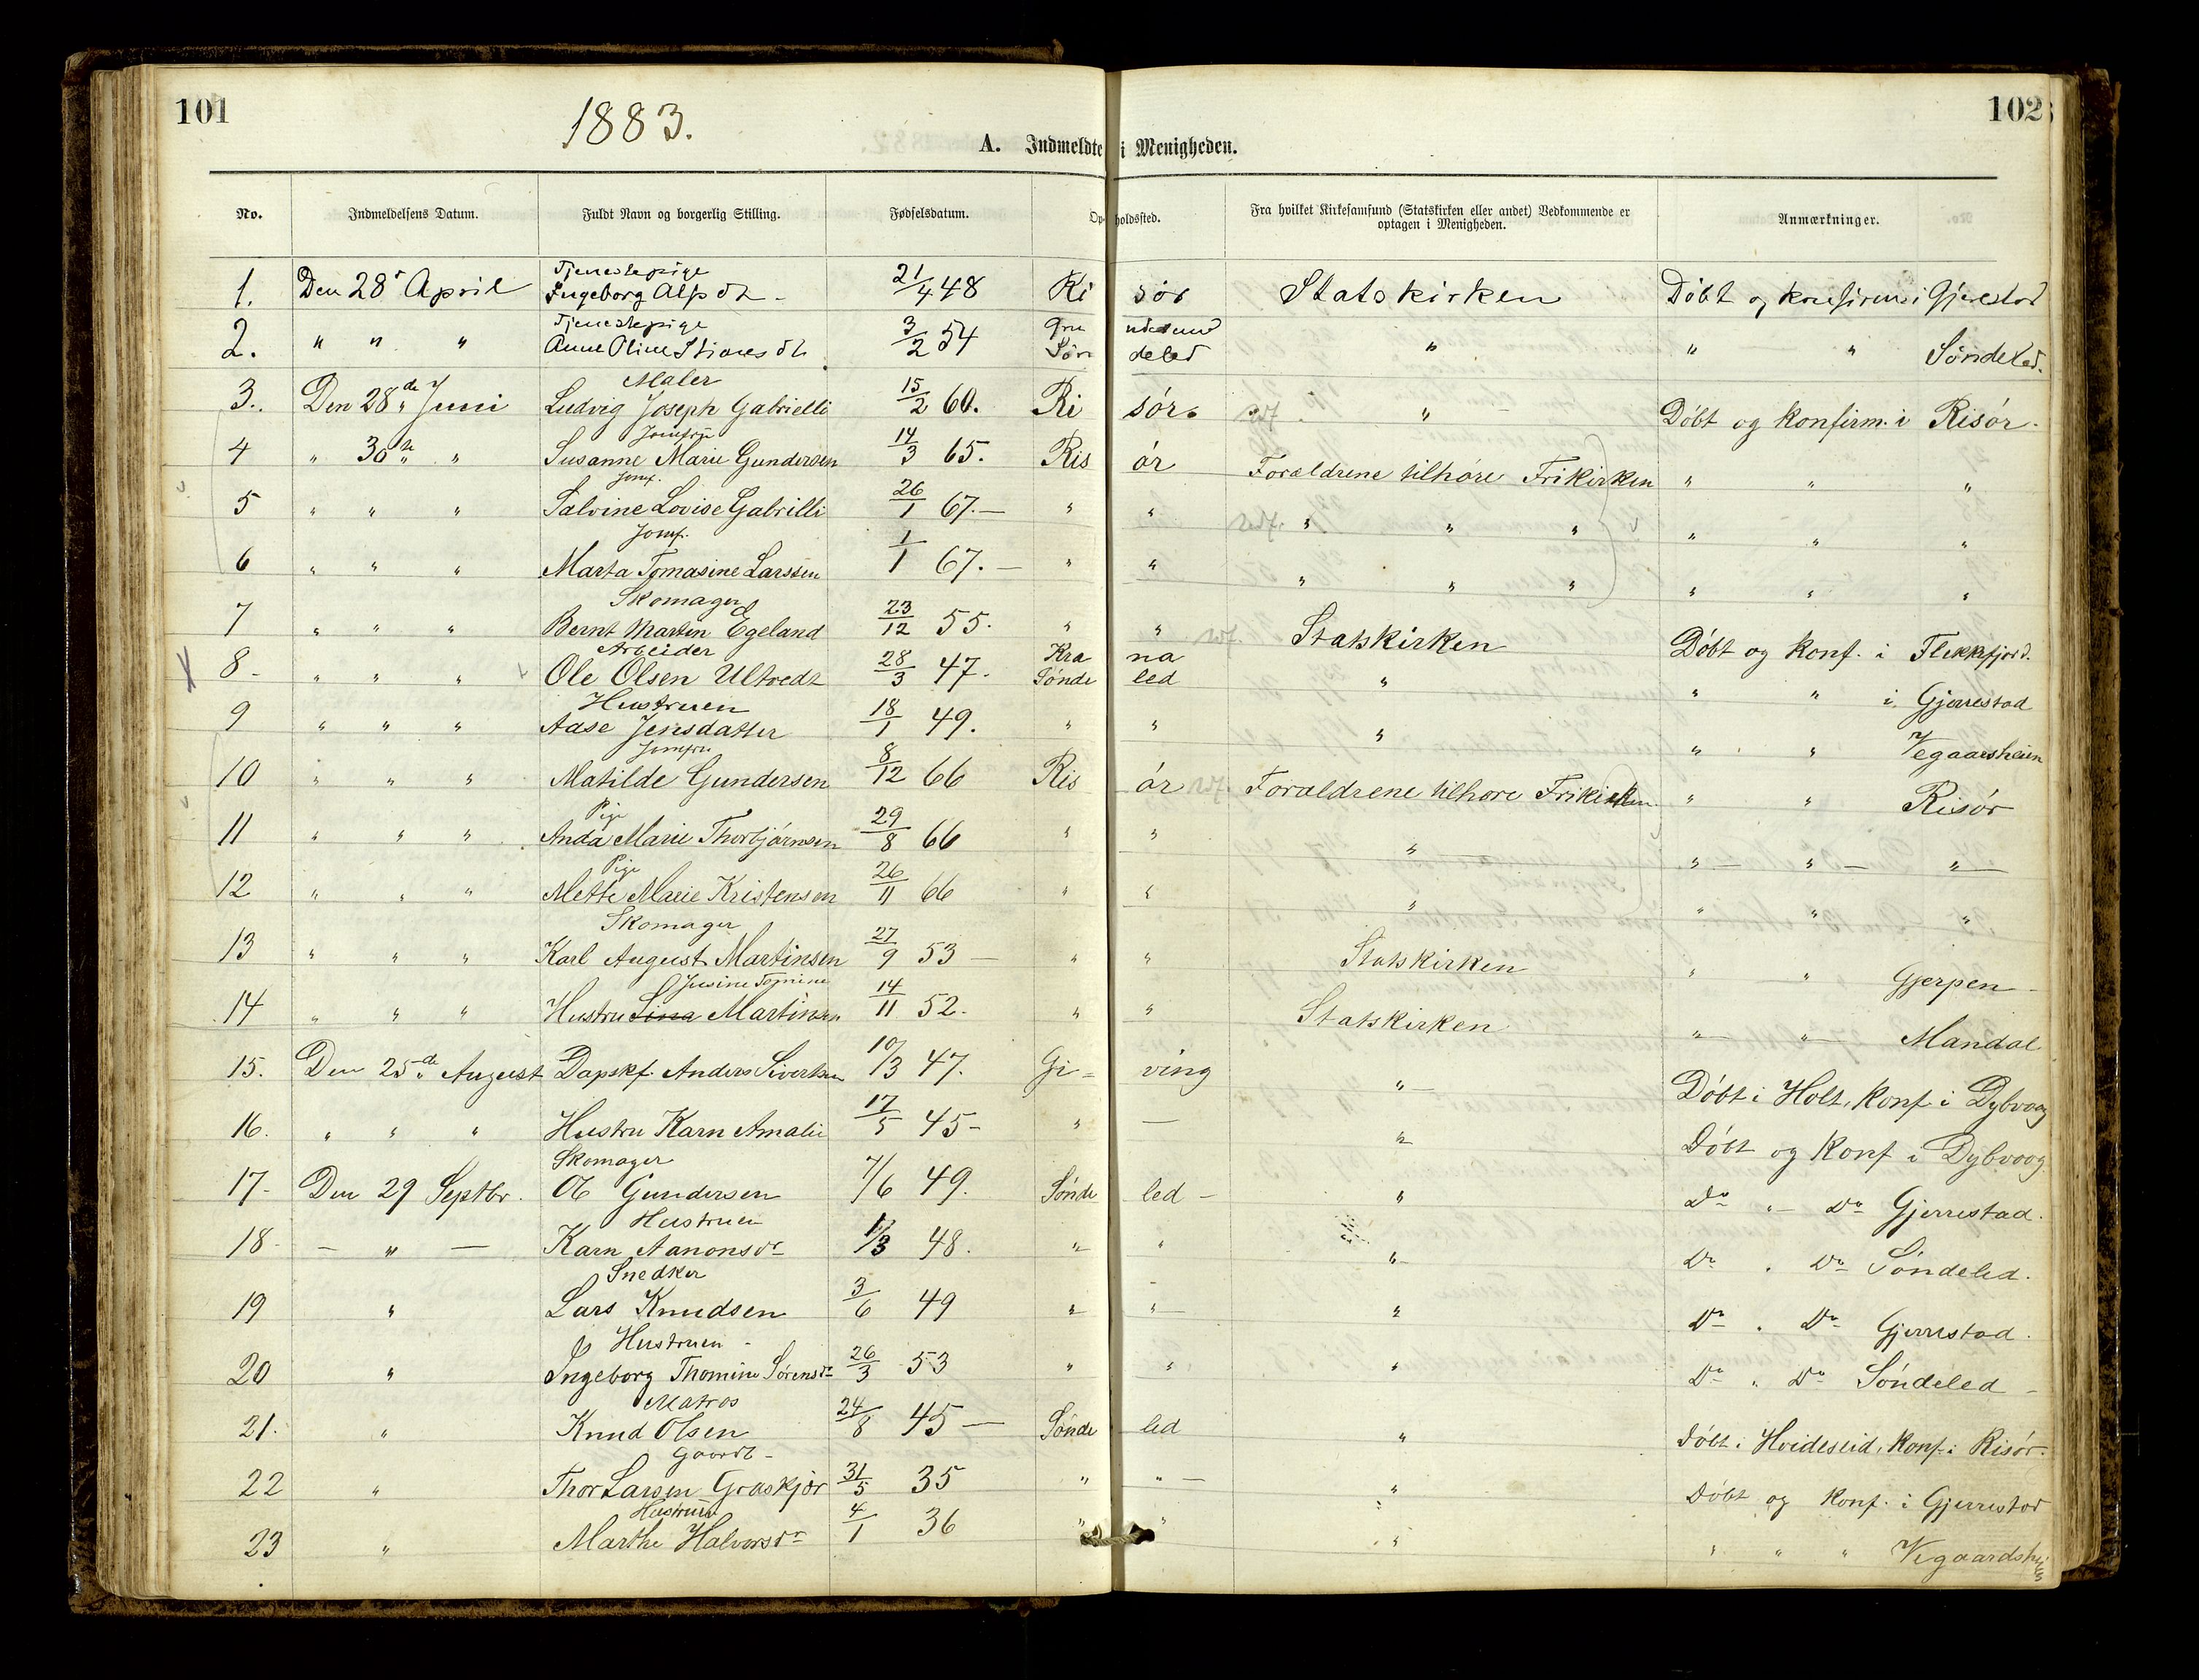 101
102
1883.
A. Indmeldte i Menigheden.
No. Indmeldelsens Datum. Fuldt Navn og borgerlig Stilling. Fødselsdatum. Opholdssted. Fra hvilket Kirkesamfund (Statskirken eller andet) Vedkommende er optagen i Menigheden. Anmærkninger.
Tjenestepige
1. Den 28 April Ingeborg Alfsdt - 21/4 48 Risør Statskirken Döbt og konfirm i Gjerestad
Tjenestepige
2. " " " Anne Oline dt 3/2 54 Söndeled " " " Söndeled.
Maler
3. Den 28de Juni Ludvig Joseph Gabrielli 15/2 60. Risör. " Döbt og Konfirm. i Risör.
Jomfru
4 " 30te " Susanne Marie Gundersen 14/3 65. Risör Forældrene tilhöre Frikirken " " "
Jomf.
5 " " " Salvine Lovise Gabrilli 26/1 67.- " " " " " " " "
Jomf.
6 " " " Marta Tomasine Larssen 1/1 67.- " " " " " " " "
Skomager
7 " " " Bernt Martin Egeland 23/12 55. " " Statskirken Döbt og Konf. i Flekkefjord.
Arbeider
8- " " " Ole Olsen Ultvedt 28/3 47. Krana Söndeled " " " i Gjerrestad
Hustruen
9 " " " Aase Jensdatter 18/1 49. " " " " " Vegaarsheien
Jomfru
10 " " " Matilde Gundersen 8/12 66 Risör Forældrene tilhöre Frikirken " " Risör
Pige
11 " " " Anda Marie Thorbjörnsen 29/8 66 " " " " - " - "
Pige
12 " " " Mette Marie Kristensen 26/11 66 " " " " " "
Skomager
13 " " " Karl August Martinsen 27/9 53 - " " Statskirken " " Gjerpen -
14 " " " Hustru Sina Martinsen 14/11 52. " " Statskirken " " Mandal
15. Den 25de August Anders Sivertsen 10/3 47. Gi-ving " Döbt i Holt, Konf. i Dybvaag
16. " " " Hustru Karn Amalie 17/5 45- " - " Döbt og Konf i Dybvaag
Skomager
17- Den 29 Septbr. Ole Gundersen 7/6 49. Söndeled - " Do " Do Gjerrestad.
Hustruen
18- - " - Karn Aanonsdr /3 48. " " " Do " Do Söndeled.
Snedker
19 " Lars Knudsen 3/6 49 " " " Do " Do Gjerrestad.
Hustruen -
20 " Ingeborg Thomine Sörensdr 26/3 53 " " " Do " Do Söndeled -
Matros
21. " Knud Olsen 24/8 45 - Söndeled " Döbt i Hvideseid, Konf. i Risör.
Gaardb -
22 " Thor Larsen Graskjær 31/5 35 " " - " Döbt og Konf. i Gjerrestad
Hustruen
23 " Marthe Halvorsdr 4/1 36 " " " " " " Vegaardsheien